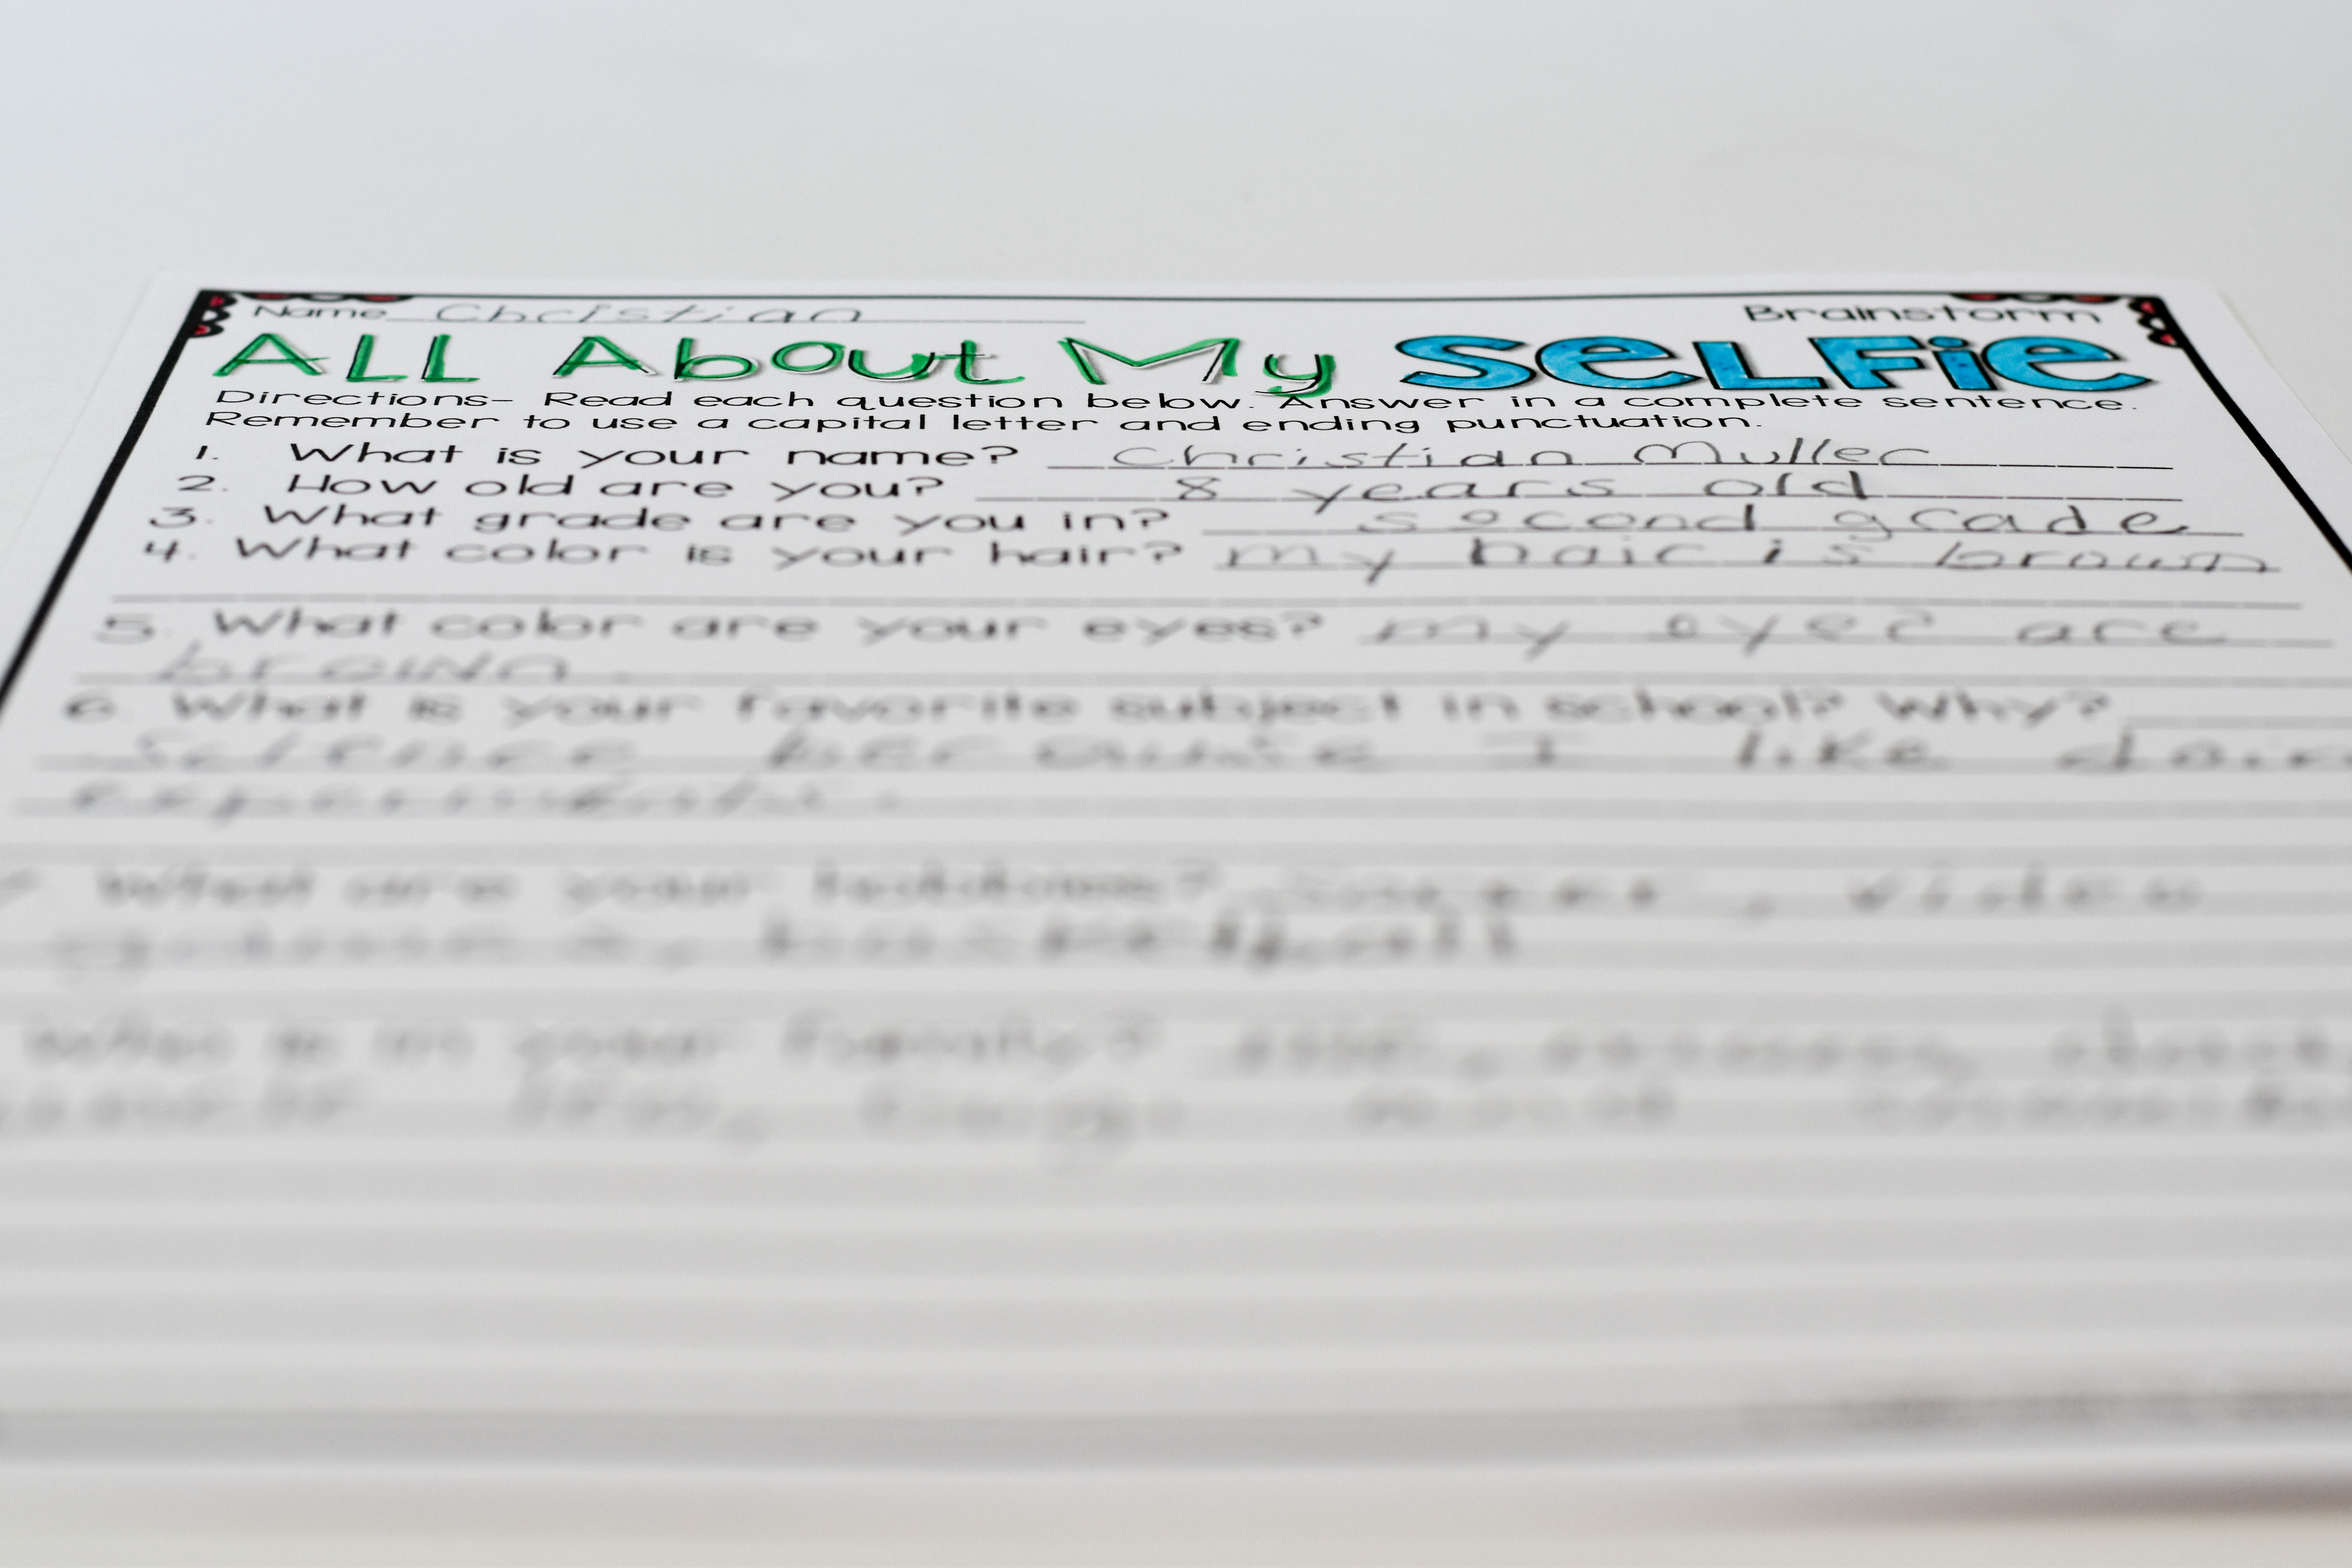 Name Christian Brainstorm
ALL About My SeLFie
Directions- Read each question below. Answer in a complete sentence.
Remember to use a capital letter and ending punctuation.
1. What is your name? Christian Muller
2. How old are you? 8 years old
3. What grade are you in? second grade
4. What color is your hair? my hair is brown
5. What color are your eyes? my eyes are
brown.
6. What is your favorite subject in school? Why?
Science because I like
What are your hobbies? Soccer, video
basketball
Who is in your family?